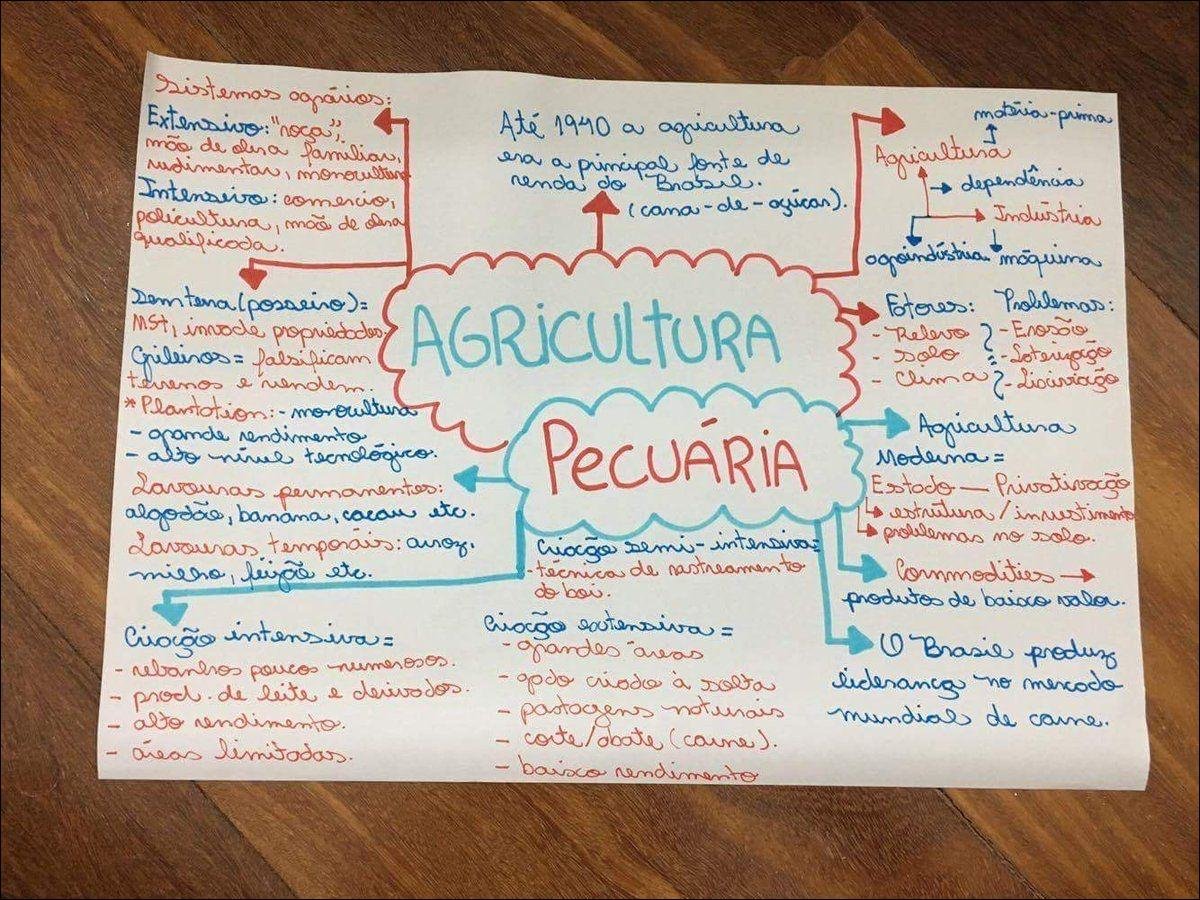 Sistemas agrários:
Extensivo: "roça",
mão de obra familiar,
rudimentar, monocultura
Intensivo: comercio,
policultura, mão de obra
qualificada.
Até 1940 a agricultura
era a principal fonte de
renda do Brasil.
(cana-de-açúcar).
matéria-prima
Agricultura
dependência
Indústria
agroindústria máquina
AGRICULTURA
PECUÁRIA
Sem terra (posseiro) =
MST, invade propriedades.
Grileiros = falsificam
terrenos e vendem.
* Plantation: - monocultura
- grande rendimento
- alto nível tecnológico.
Lavouras permanentes:
algodão, banana, cacau etc.
Lavouras temporáis: arroz,
milho, feijão etc.
Fatores: Problemas:
- Relevo - Erosão
- Solo - Loterização
- Clima - Lixiviação
Agricultura
Moderna =
Estado — Privativação
estrutura/investimento
problemas no solo.
Commodities →
produtos de baixo valor.
O Brasil produz
liderança no mercado
mundial de carne.
Criação semi-intensiva=
- técnica de rastreamento
do boi.
Criação intensiva =
- rebanhos poucos numerosos.
- prod. de leite e derivados.
- alto rendimento.
- áreas limitadas.
Criação extensiva =
- grandes áreas
- gado criado à solta
- pastagens naturais
- corte/abate (carne).
- baixo rendimento